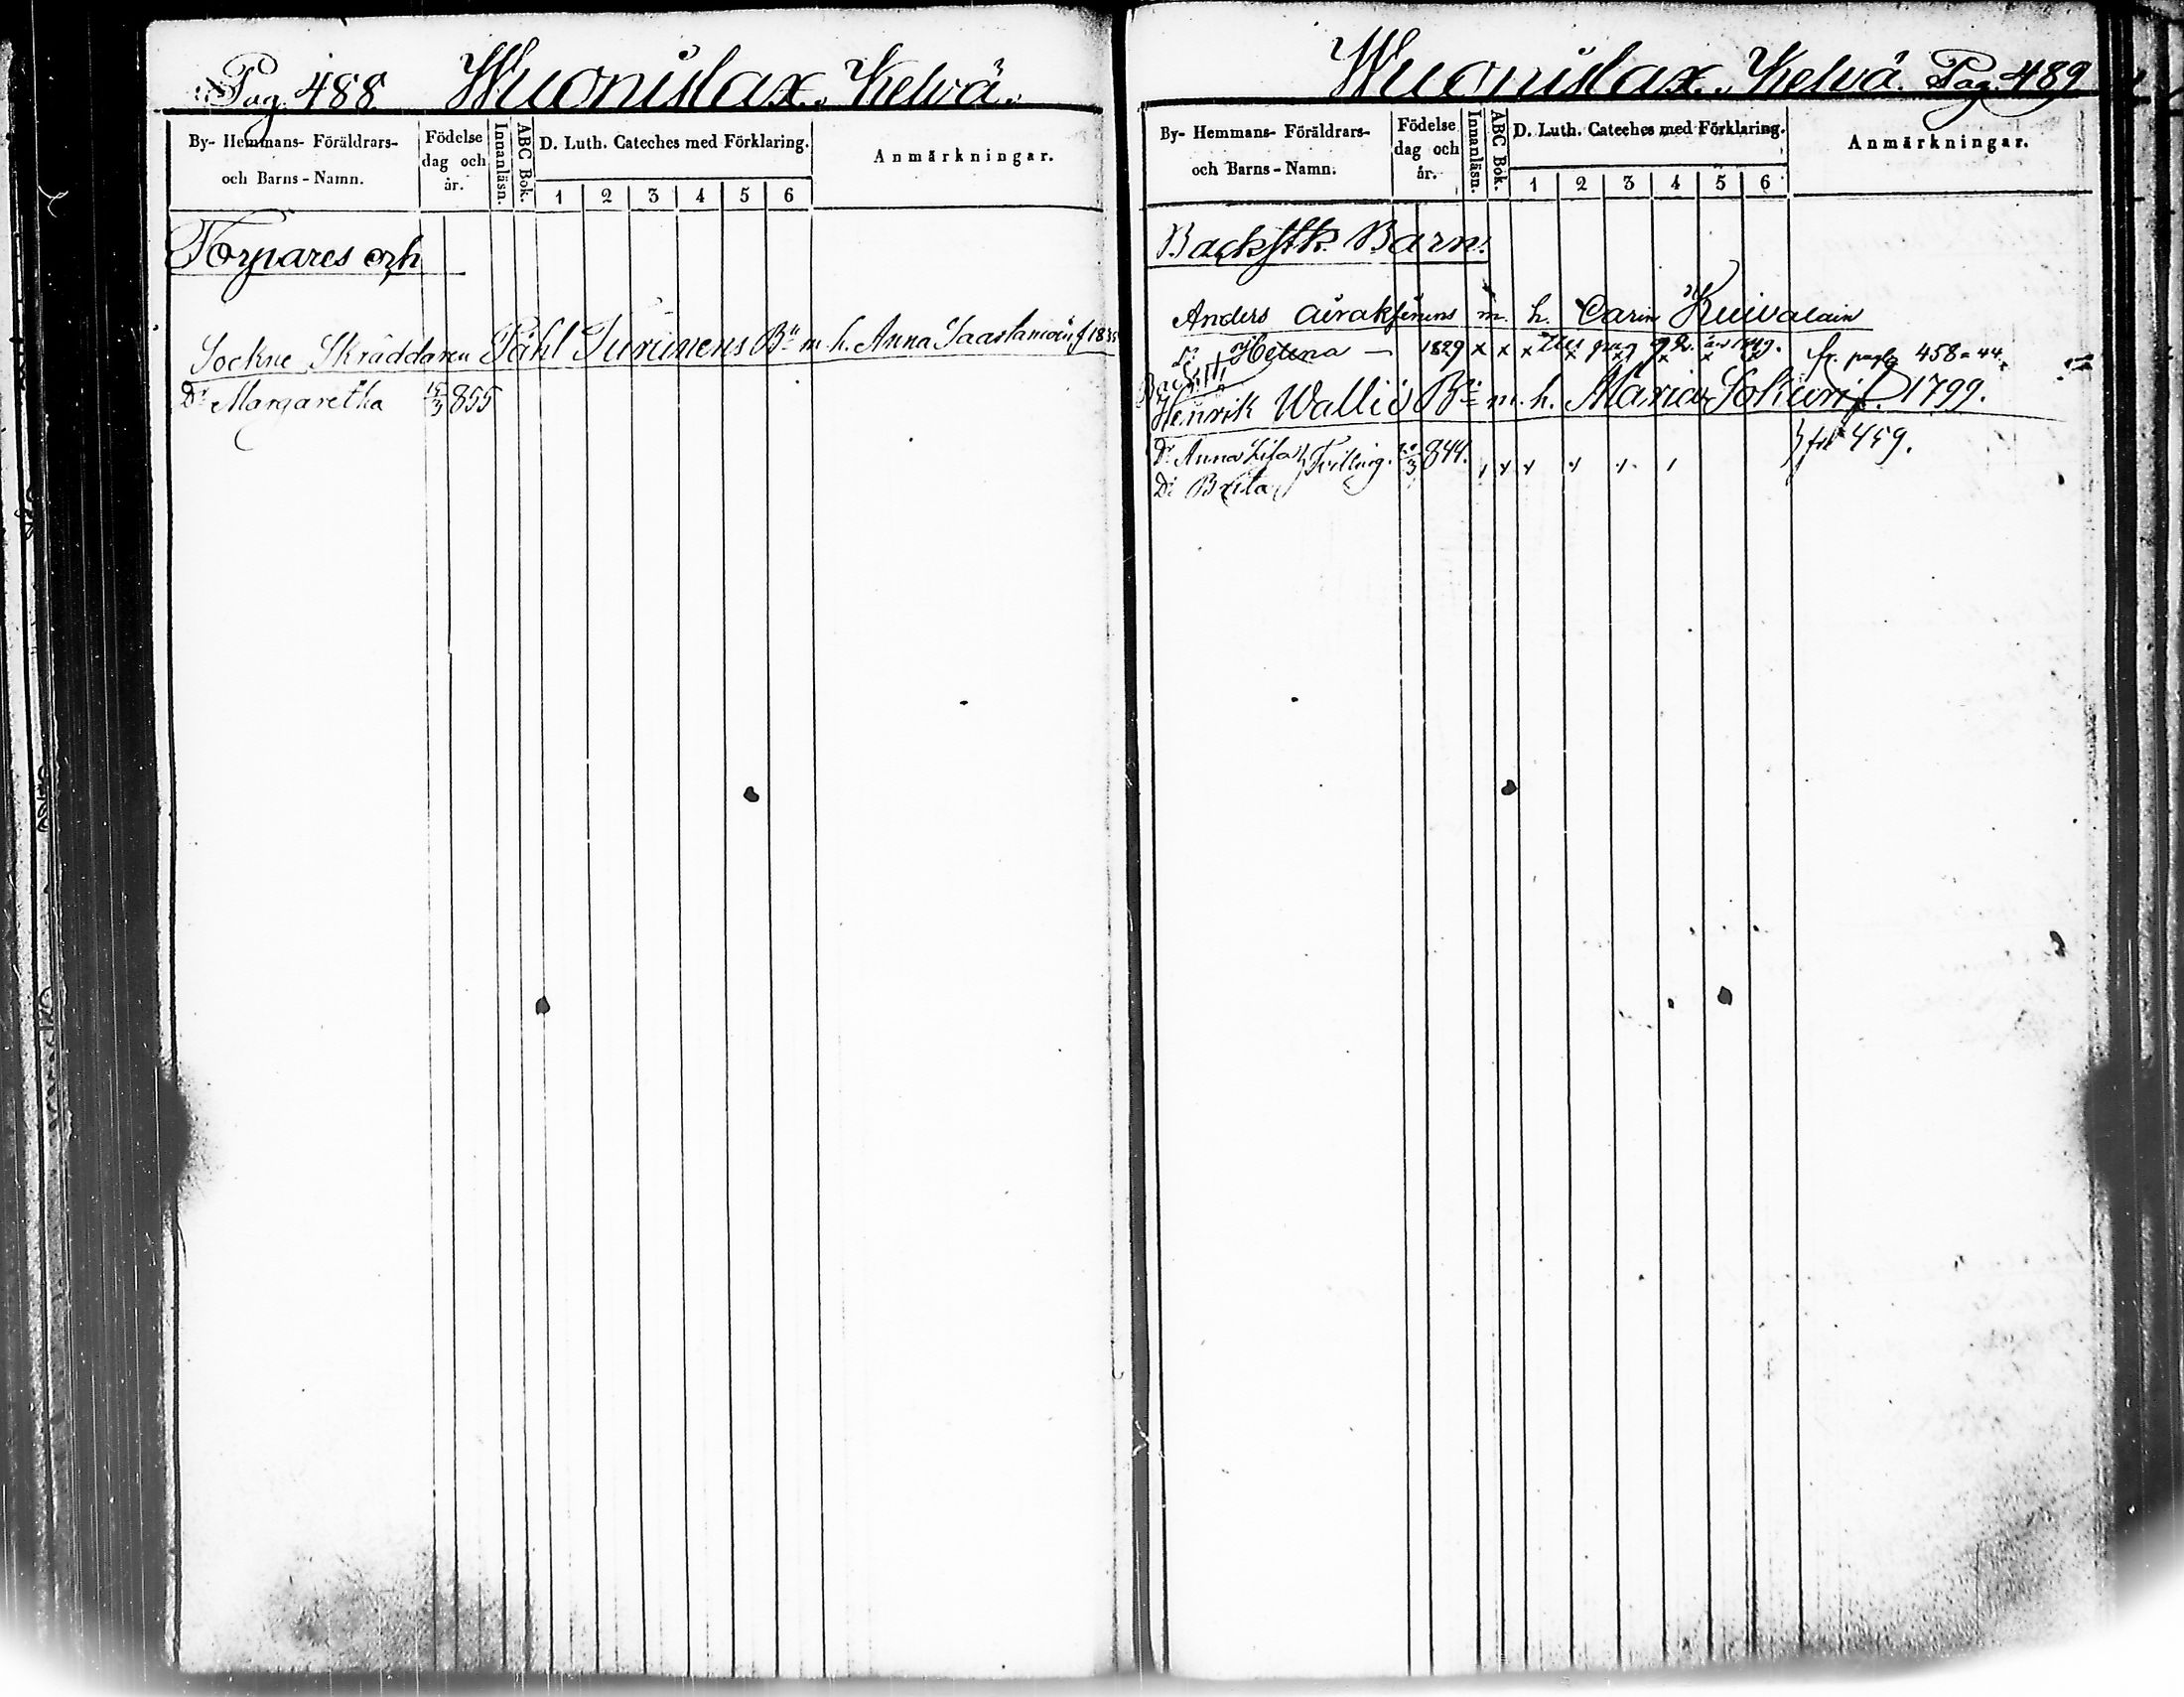 Pag. 488 Wuonislax. Kelvä.
By- Hemmans- Föräldrars- och Barns-Namn.
Födelse dag och år.
Innanläsn.
ABC Bok.
D. Luth. Cateches med Förklaring.
1 2 3 4 5 6
Anmärkningar.
Torpares och
Sockne Skräddaren Påhl Turunens Bn m. h. Anna Saastamoin f
Dr Margaretha 855
Wuonislax. Kelvä. Pag. 489
By- Hemmans- Föräldrars- och Barns-Namn.
Födelse dag och år.
Innanläsn.
ABC Bok.
D. Luth. Cateches med Förklaring.
1 2 3 4 5 6
Anmärkningar.
Backstk. Barn.
Anders Airaksinens m. h. Carin Kuivalain
Helena — 1829 x x x x x x x x fr. pag 458 - 44.
Henrik Wallii Bn m. h. Maria Sokuri f. 1799.
Dr Anna Lisa } Tvilling. 844. } fr 459.
Dr Brita